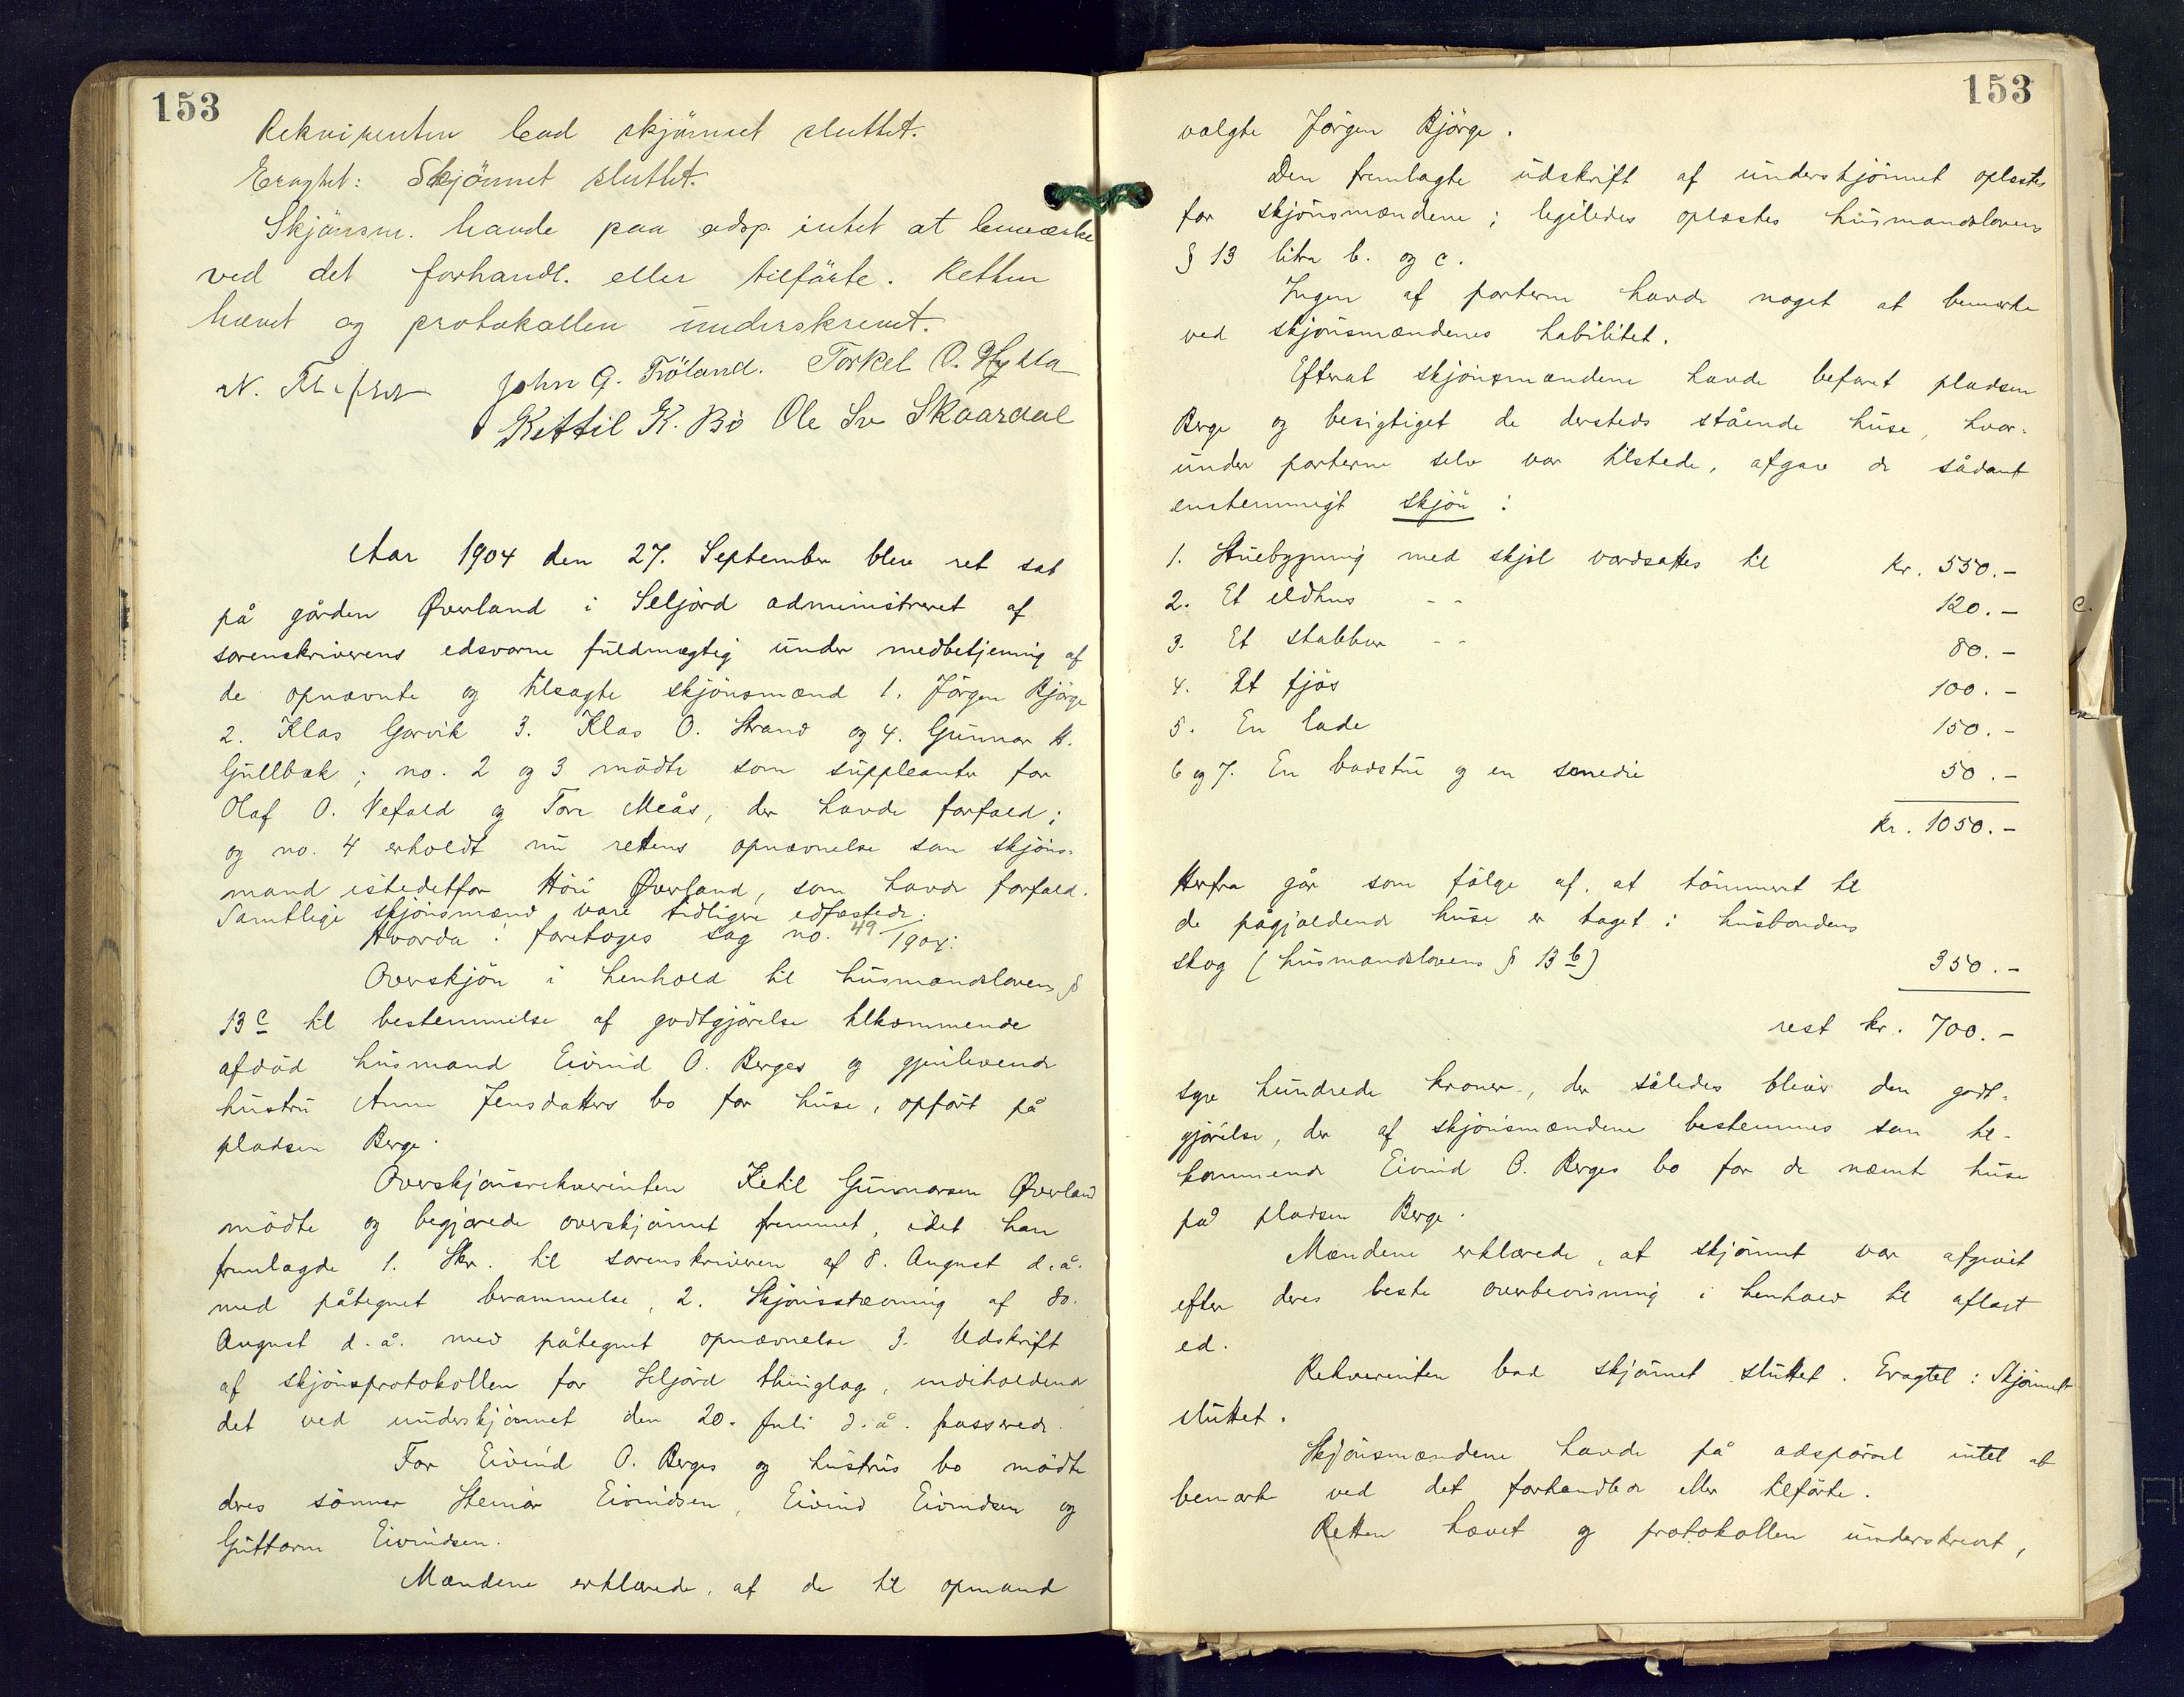 153
Rekvirenten bad skjönnet sluttet.
Eragtet: Skjönnet sluttet.
Skjönsm. havde paa adsp. intet at bemærke
ved det forhandl. eller tilförte. Retten
hævet og protokollen underskrevet.
N. John G. Tröland. Torkel O. Hykla
Kittil K. Bö Ole Sv Skaardal
Aar 1904 den 27. September blev ret sat
på gården Øverland i Seljord administreret af
sorenskriverens edsvorne fuldmægtig under medbetjening af
de opnævnte og tilsagte skjönsmænd 1. Jörgen Björge
2. Klas Garvik 3. Klas O. Strand og 4. Gunnar H.
Gullbæk; no. 2 og 3 mödte som suppleanter for
Olaf O. Nefald og Tore Meås, der havde forfald;
og no. 4 erholdt nu rettens opnævnelse som skjöns-
mand istedetfor Øverland, som havde forfald.
Samtlige skjönsmænd vare tidligere edfæstede.
Hvorda: foretoges sag no. 49/1904:
Overskjön i henhold til husmandslovens §
13 c til bestemmelse af godtgjörelse tilkommende
afdöd husmand Eivind O. Berges og gjenlevende
hustru Anne Jensdatters bo for huse, opfört på
pladsen Berge.
Overskjönsrekvirenten Ketil Gunnarsen Øverland
mödte og begjærede overskjönnet fremmet, idet han
fremlagde 1. Skr. til sorenskriveren af 8. August d.å.
med påtegnet berammelse, 2. Skjönsstævning af do.
August d.å. med påtegnet opnævnelse 3. Udskrift
af skjönsprotokollen for Seljord thinglag, indeholdende
det ved underskjönnet den 20. Juli d.å. passerede.
For Eivind O. Berges og hustrus bo mödte
deres sönner Steinar Eivindsen, Eivind Eivindsen og
Guttorm Eivindsen.
Mændene erklærede, at de til opmand
153
valgte Jörgen Björge.
Den fremlagte udskrift af underskjönnet oplæstes
for skjönsmændene; ligeledes oplæstes husmandslovens
§ 13 litra b. og c.
Ingen af parterne havde noget at bemærke
ved skjönsmændenes habilitet.
Efterat skjönsmændene havde befaret pladsen
Berge og besigtiget de dersteds stående huse, hvor-
under parterne selv var tilstede, afgav de sådant
enstemmigt skjön:
1. Stuebygning med skjol værdsættes til kr. 550.-
2. Et ildhus - - 120.-
3. Et stabbur - - 80.-
4. Et fjös 100.-
5. En lade 150.-
6 og 7. En badstu og en smedie 50.-
kr. 1050.-
Herfra går som fölge af, at tömmeret til
de pågjældende huse er taget i husbondens
skog (husmandslovens § 13 b) 350.-
rest kr. 700.-
syv hundrede kroner, der således bliver den godt-
gjörelse, der af skjönsmændene bestemmes som til-
kommende Eivind O. Berges bo for de nævnt huse
på pladsen Berge.
Mændene erklærede, at skjönnet var afgivet
efter deres beste overbevisning i henhold til aflagt
ed.
Rekvirenten bad skjönnet sluttet. Eragtet: Skjönnet
sluttet.
Skjönsmændene havde på adspörsel intet at
bemærke ved det forhandlede eller tilförte.
Retten hævet og protokollen underskrevet,